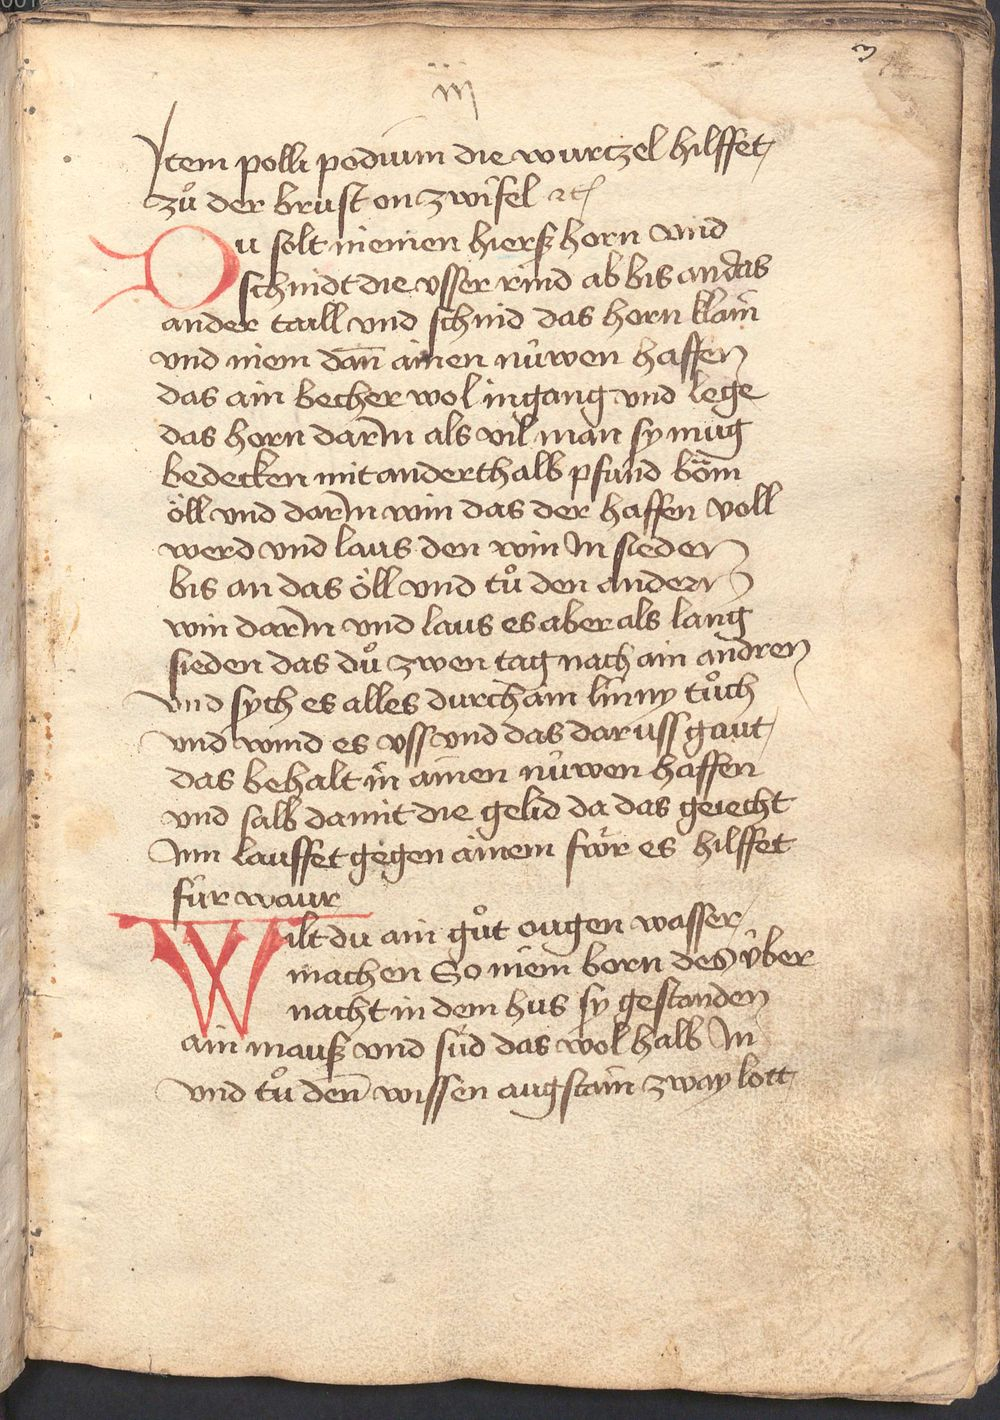 3
iij
Item polli podium die wurtzel hilffet
zů der brust on zwifel etc
Du solt niemen hierß horn vnd
schnidt die vsser rind ab bis an das
ander taill vnd schnid das horn klain
vnd niem dan̄ ainen nüwen haffen
das ain becher wol ingang vnd lege
das horn darin als vil man sy mug
bedecken mit anderthalb pfund böm
öll vnd darin win das der haffen voll
werd vnd laus den win In sieden
bis an das öll vnd tů den andern
win darin vnd laus es aber als lang
sieden das dů zwen tag nach ain andren
vnd sych es alles durch ain linny tůch
vnd wind es vss vnd das daruss gaut
das behalt in ainen nüwen haffen
vnd salb damit die gelid da das geiecht
Inn lauffet gegen ainem fwör es hilffet
für waur
Wilt du ain gůt ougen wasser
machen So niem born des über
nacht in dem hus sy gestanden
ain mauß vnd süd das wol halb In
vnd tů den̄ wissen augstain zway lott